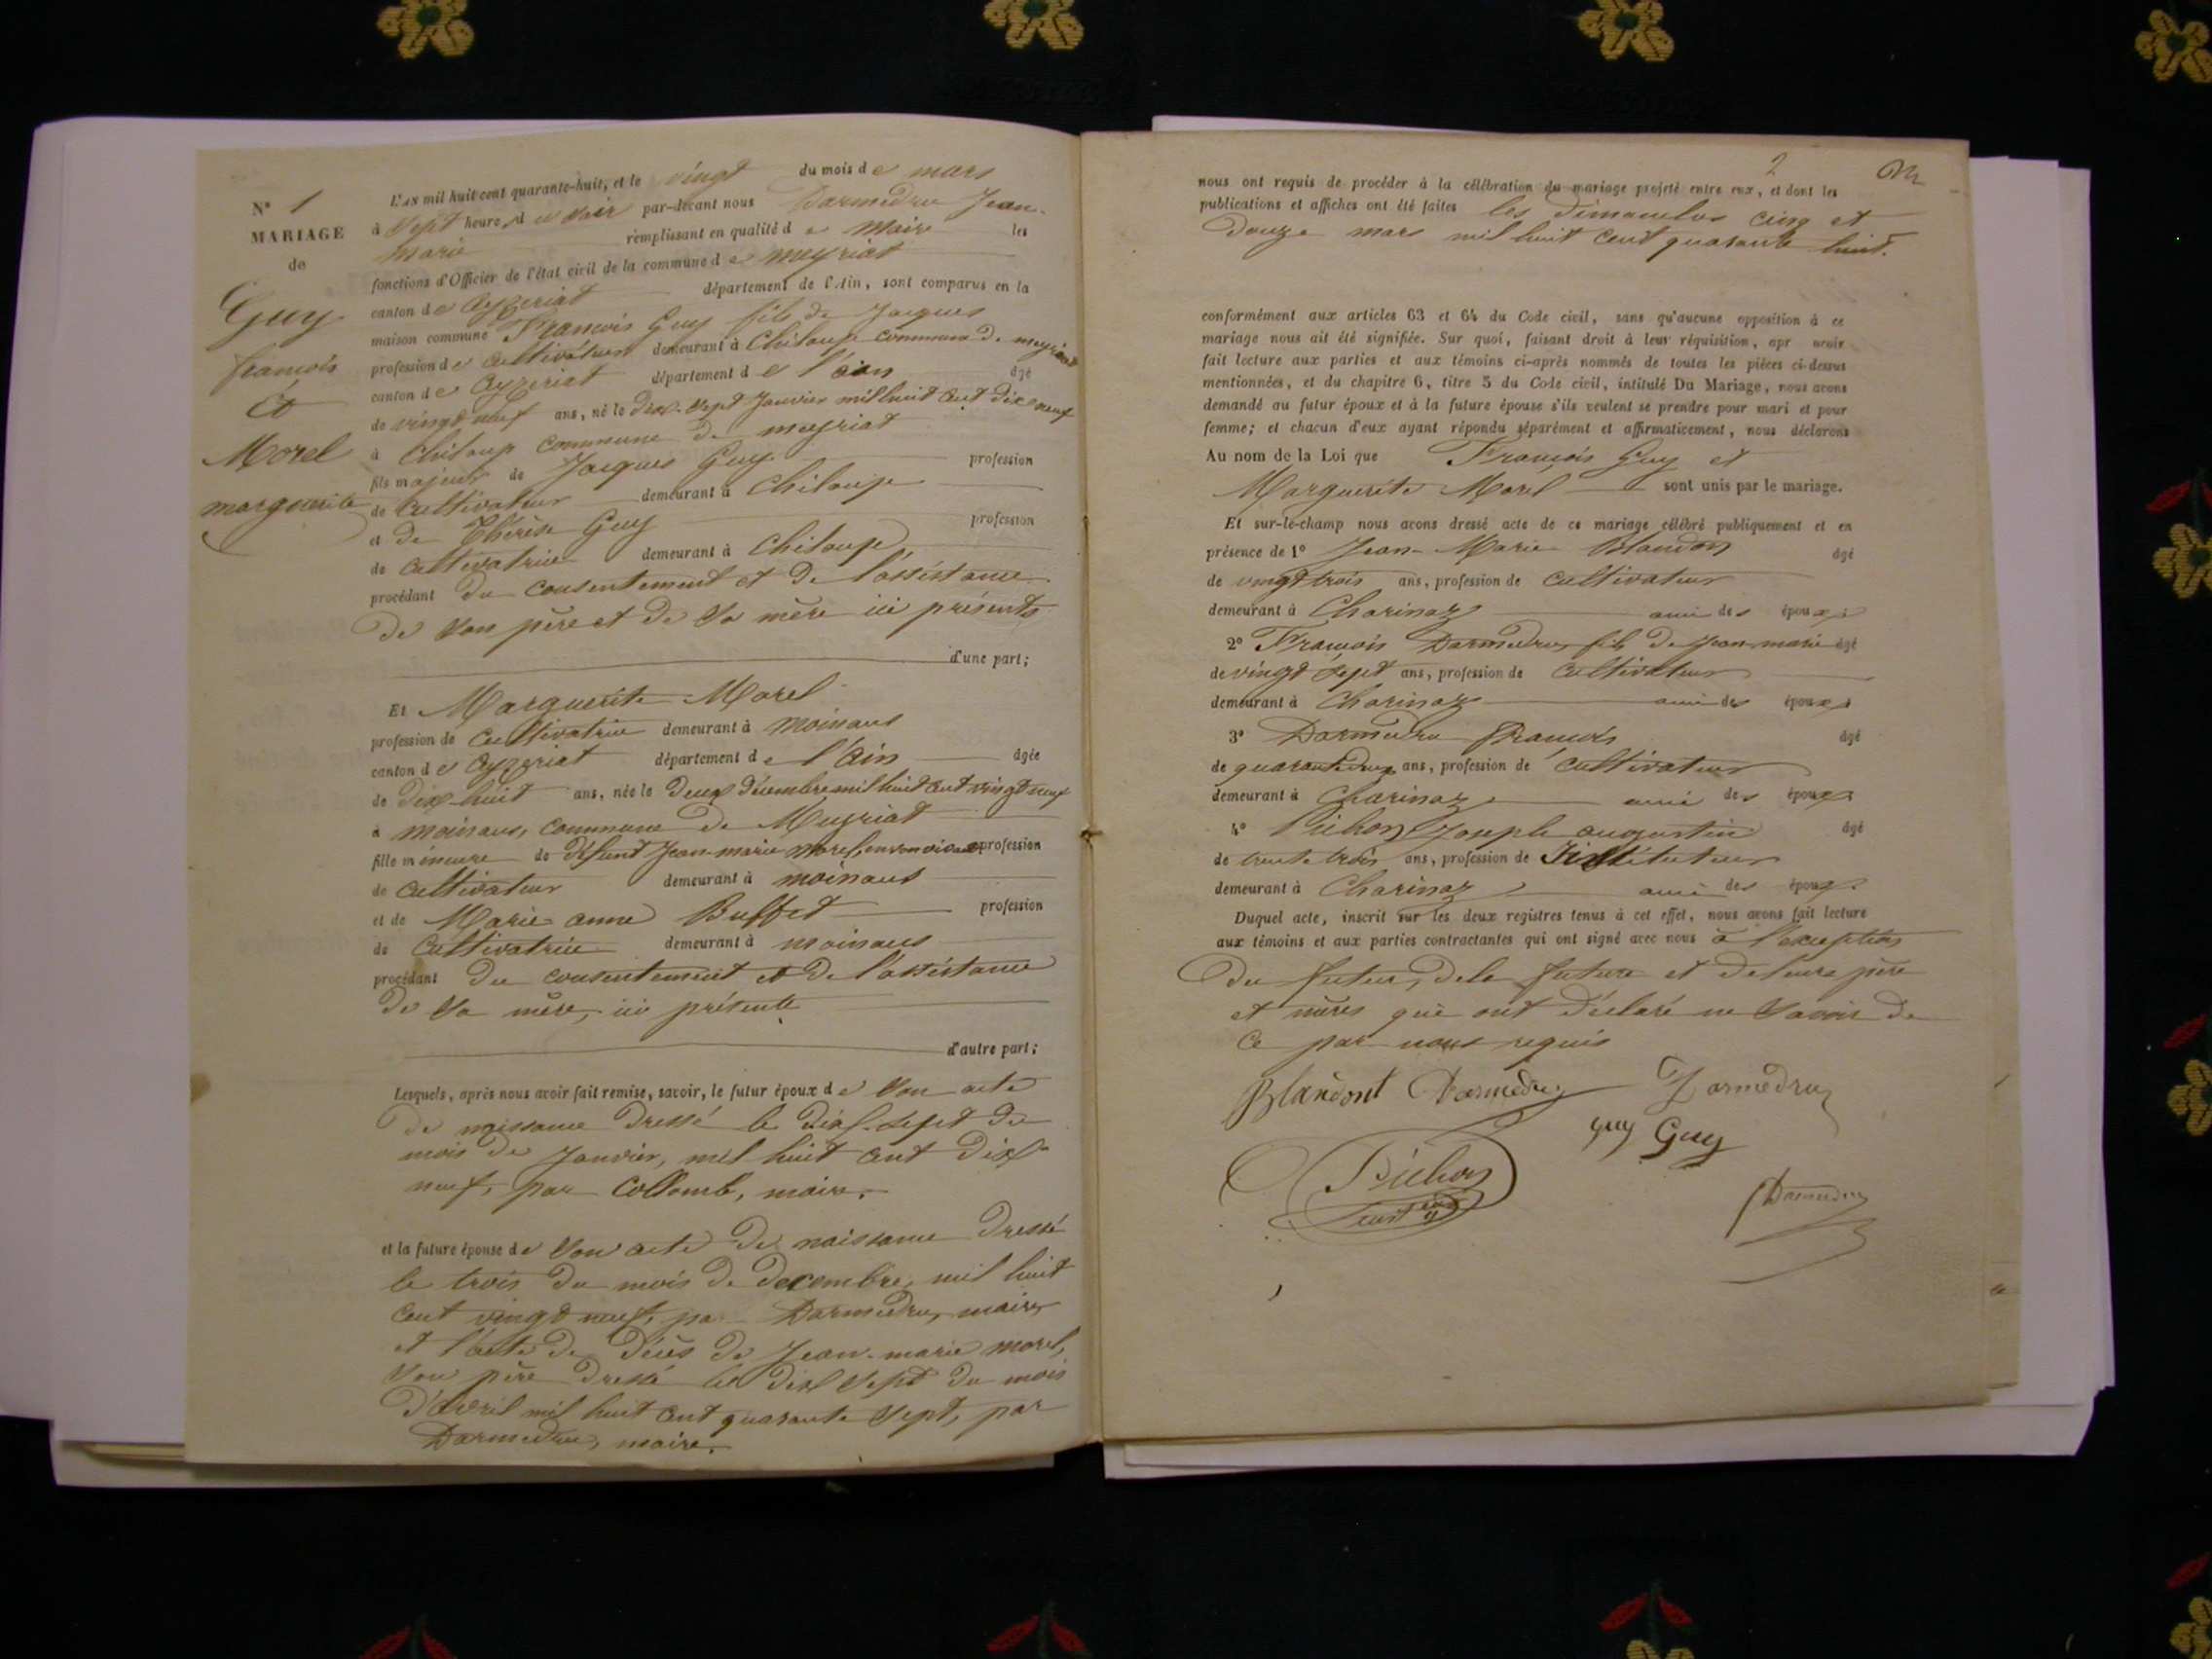 N° 1
MARIAGE
de
Guy
francois
Et
Morel
marguerite
L'AN mil huit cent quarante-huit, et le vingt du mois de mars
à Sept heures du Soir par-devant nous Darmedru Jean-
marie remplissant en qualité de Maire les
fonctions d'Officier de l'état civil de la commune de meyriat
canton de Ceyzeriat département de l'Ain, sont comparus en la
maison commune Francois Guy fils de Jacques
profession de Cultivateur demeurant à Chiloup commune de meyriat
canton de Ceyzeriat département de l'ain âgé
de vingt neuf ans, né le Dix-Sept Janvier mil huit Cent Dix neuf
à Chiloup Commune de meyriat
fils majeur de Jacques Guy profession
de Cultivateur demeurant à Chiloup
et de Thérèse Guy profession
de Cultivatrice demeurant à Chiloup
procédant du consentement et de l'assistance
de Son père et de Sa mère ici présents
d'une part;
Et Marguerite Morel
profession de Cultivatrice demeurant à moinans
canton de Ceyzeriat département de l'Ain âgée
de Dix-huit ans, née le Deux Décembre mil huit Cent vingt neuf
à moinans, Commune de Meyriat
fille mineure de défunt Jean-marie Morel, en son vivant profession
de Cultivateur demeurant à moinans
et de Marie-anne Buffet profession
de Cultivatrice demeurant à moinans
procédant du consentement et de l'assistance
de Sa mère, ici présente
d'autre part;
Lesquels, après nous avoir fait remise, savoir, le futur époux de Son acte
de naissance Dressé le Dix-Sept du
mois de Janvier, mil huit Cent Dix-
neuf, par Collomb, maire.
et la future épouse de Son acte de naissance Dressé
le trois du mois de Decembre, mil huit
Cent vingt neuf, par Darmedru, maire
et l'acte de Décès de Jean-marie morel,
Son père Dressé le Dix Sept du mois
D'avril mil huit Cent quarante Sept, par
Darmedru, maire.
2
nous ont requis de procéder à la célébration du mariage projeté entre eux, et dont les
publications et affiches ont été faites les Dimanches Cinq et
Douze mars mil huit Cent quarante huit.
conformément aux articles 63 et 64 du Code civil, sans qu'aucune opposition à ce
mariage nous ait été signifiée. Sur quoi, faisant droit à leur réquisition, apr avoir
fait lecture aux parties et aux témoins ci-après nommés de toutes les pièces ci-dessus
mentionnées, et du chapitre 6, titre 5 du Code civil, intitulé Du Mariage, nous avons
demandé au futur époux et à la future épouse s'ils veulent se prendre pour mari et pour
femme; et chacun d'eux ayant répondu séparément et affirmativement, nous déclarons
Au nom de la Loi que Francois Guy et
Marguerite Morel sont unis par le mariage.
Et sur-le-champ nous avons dressé acte de ce mariage célébré publiquement et en
présence de 1° Jean-Marie Blandon âgé
de vingt trois ans, profession de Cultivateur
demeurant à Charinaz ami des époux;
2° Francois Darmedru, fils de Jean-marie âgé
de vingt Sept ans, profession de Cultivateur
demeurant à Charinaz ami des époux;
3° Darmedru Francois âgé
de quarante deux ans, profession de Cultivateur
demeurant à Charinaz ami des époux;
4° Pichon Joseph augustin âgé
de trente trois ans, profession de Instituteur
demeurant à Charinaz ami des époux.
Duquel acte, inscrit sur les deux registres tenus à cet effet, nous avons fait lecture
aux témoins et aux parties contractantes qui ont signé avec nous à l'exception
Du futur, de la future et de leurs père
et mères qui ont déclaré ne Savoir de
Ce par nous requis
Blandont Darmedru Darmedru
Guy Guy
Pichon
Darmedru